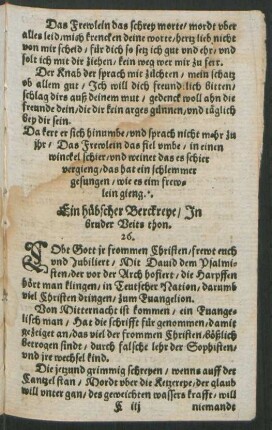 Das Frewlein das schrey morte/ mordt vber
alles leid/ mich krencken deine worte/ hertz lieb nicht
von mir scheid/ für dich so setz ich gut vnd ehr/ vnd
solt ich mit dir ziehen/ kein weg wer mir zu ferr.
Der Knab der sprach mit züchten/ mein schatz
ob allem gut/ Ich will dich freundlich bitten/
schlag dirs auß deinem mut/ gedenck woll ahn die
freunde dein/ die dir kein arges günnen/ vnd täglich
bey dir sein.
Da kert er sich hinumbe/ vnd sprach nicht mehr zu
jhr/ Das Frewlein das fiel vmbe/ in einen
winckel schier/ vnd weinet das es schier
vergieng/ das hat ein schlemmer
gesungen/ wie es eim frew-
lein gieng.
Ein hübscher Berckreye/ In
bruder Veits thon.
26.
LObt Gott jr frommen Christen/ frewt euch
vnd Jubiliert/ Mit Dauid dem Psalmi-
sten/ der vor der Arch hofiert/ die Harpffen
hört man klingen/ in Teutscher Nation/ darumb
viel Christen dringen/ zum Euangelion.
Von Mitternacht ist kommen/ ein Euange-
lisch man/ Hat die schrifft für genommen/ damit
gezeiget an/ das viel der frommen Christen/ bößlich
betrogen sindt/ durch falsche lehr der Sophisten/
vnd jre wechsel kind.
Die jetzund grimmig schreyen/ wenns auff der
Cantzel stan/ Mordt vber die Ketzereye/ der glaub
will vnter gan/ des geweichten wassers krafft/ will
K iij niemande